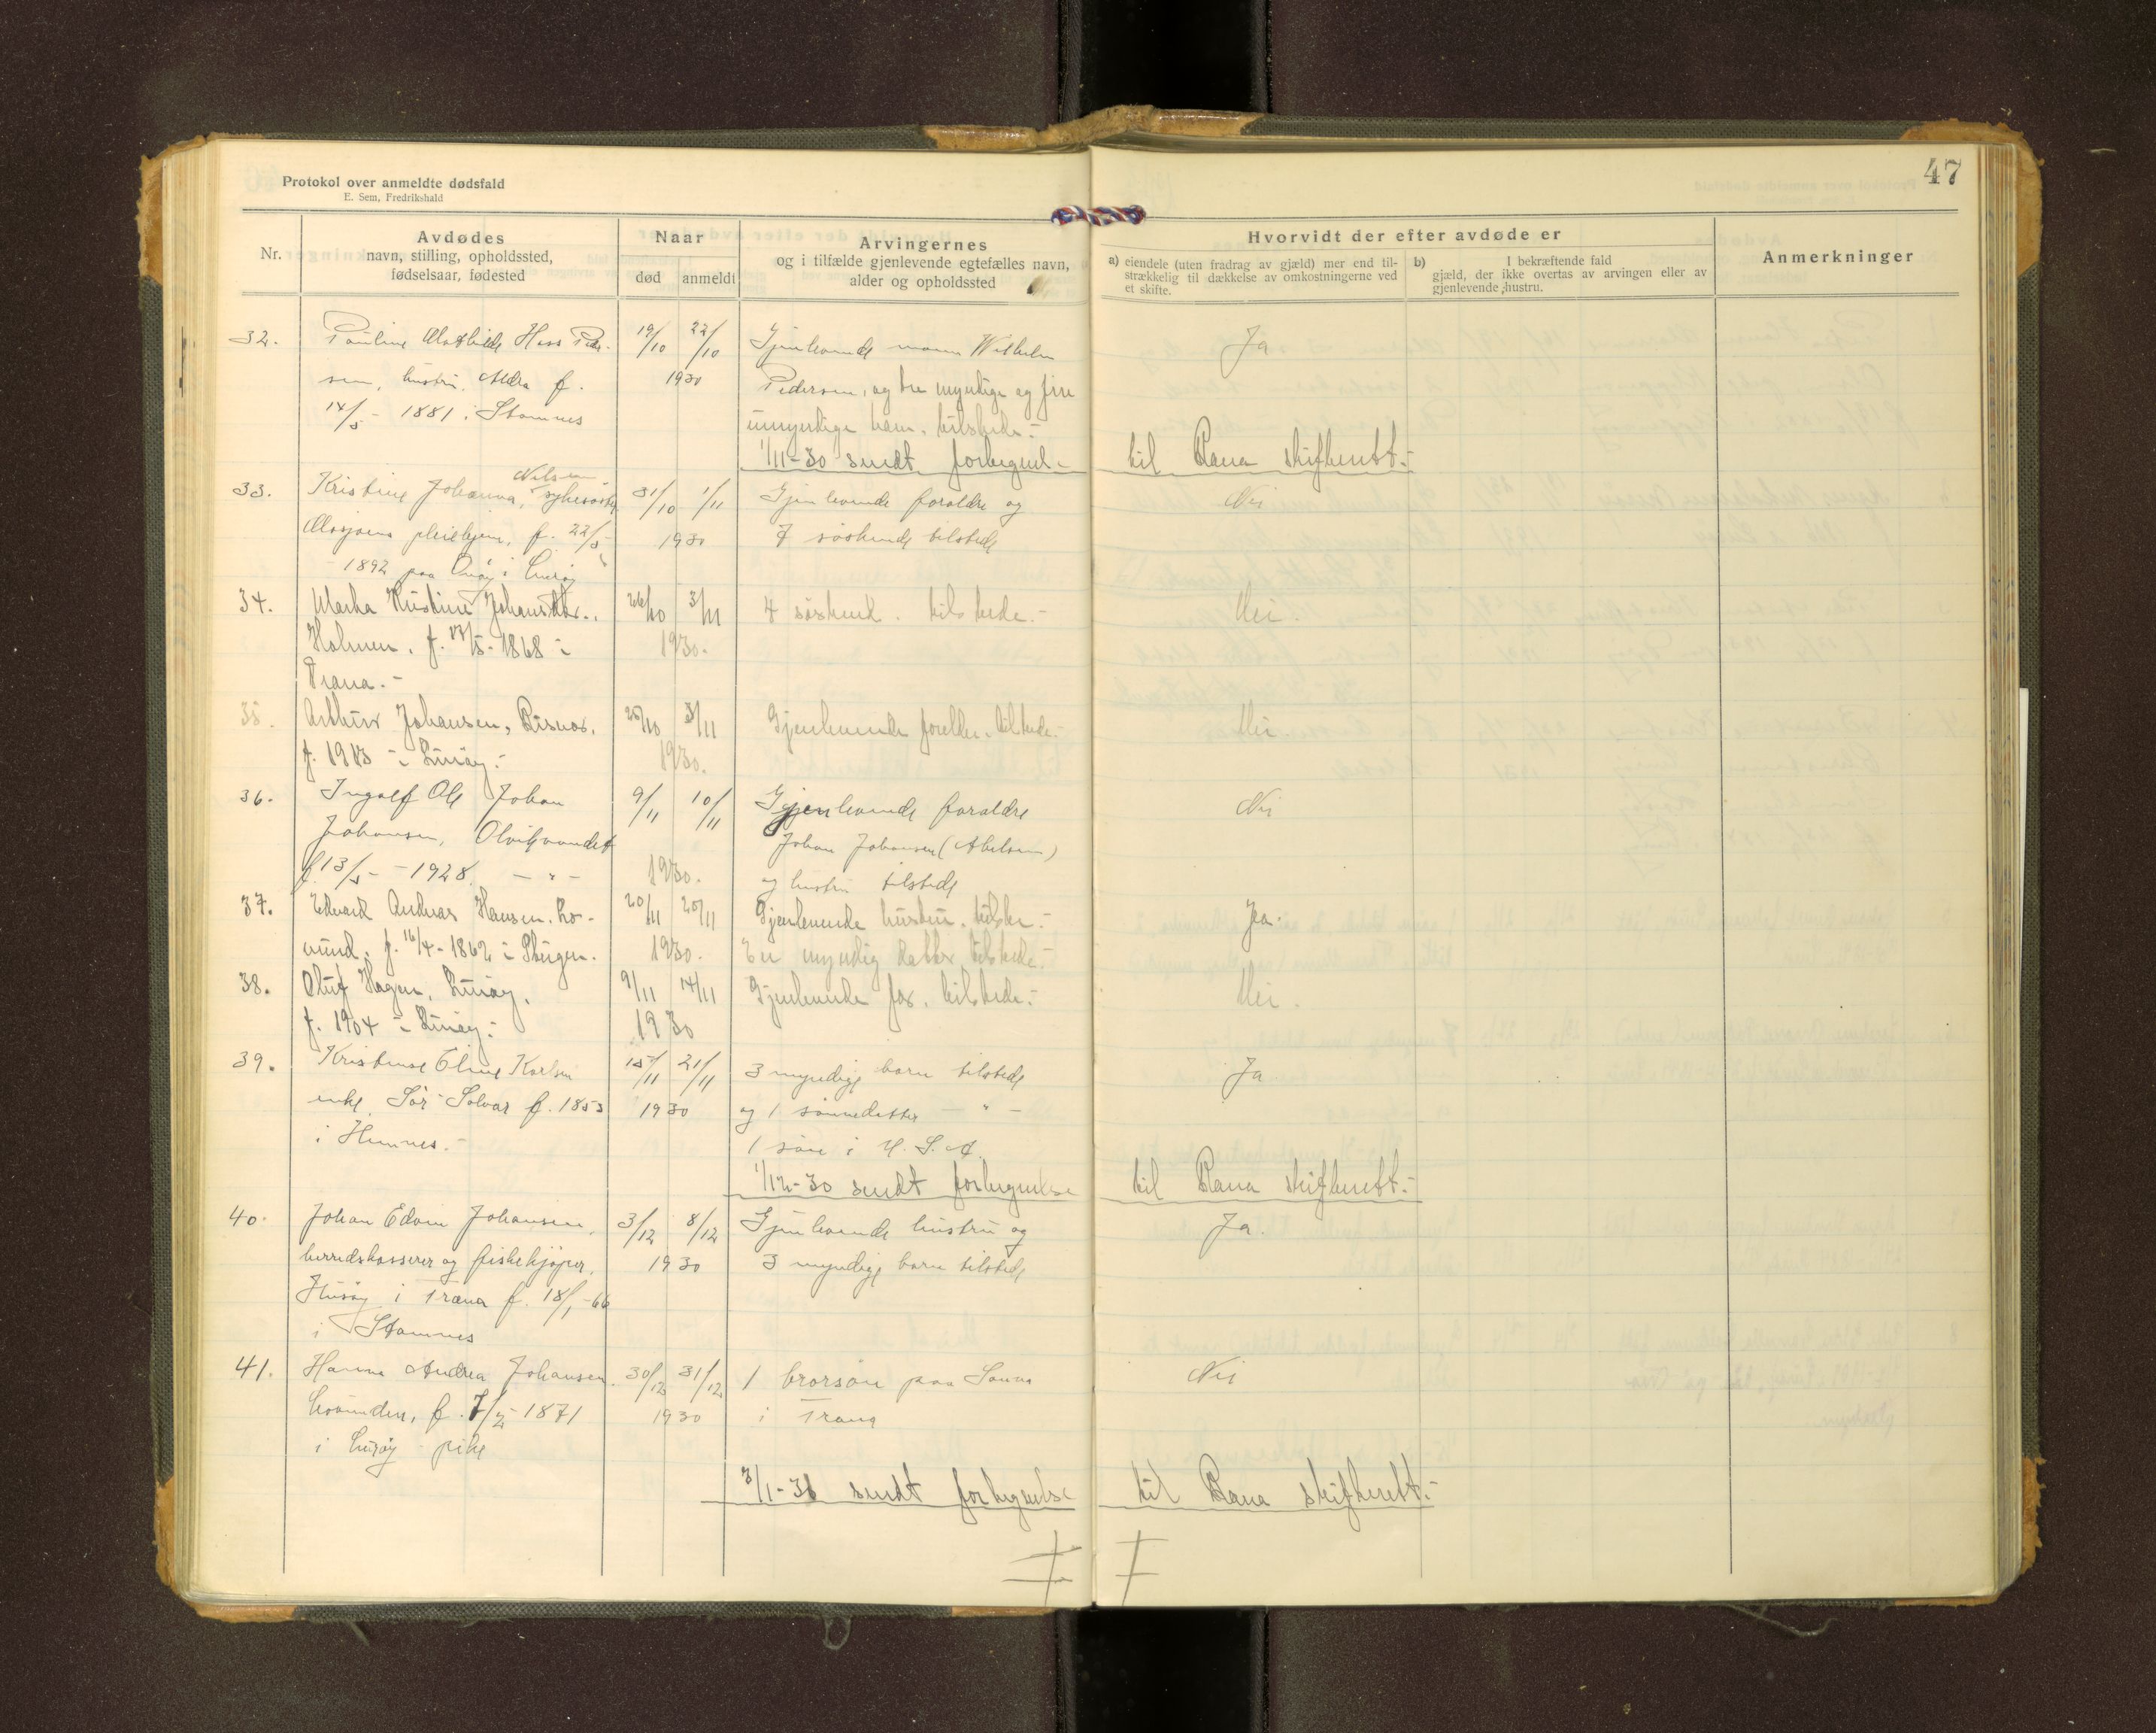 47
Protokol over anmeldte dødsfald
E. Sem, Fredrikshald
Nr.
Avdødes
navn, stilling, opholdssted,
fødselsaar, fødested
Naar
død anmeldt
Arvingernes
og i tilfælde gjenlevende egtefælles navn,
alder og opholdssted
Hvorvidt der efter avdøde er
a) eiendele (uten fradrag av gjæld) mer end til-
strækkelig til dækkelse av omkostningerne ved
et skifte.
b) I bekræftende fald
gjæld, der ikke overtas av arvingen eller av
gjenlevende hustru.
Anmerkninger
32. Pauline Mathilde Hass Peder- 19/10 22/10 Gjenlevende mann Wilhelm Ja
sen, hustru, Aldra f. 1930 Pedersen, og tre myndige og fire
14/5 - 1881 i Stamnes umyndige barn, tilstede.-
1/11-30 sendt fortegnel- til Rana skifterett.-
Nilsen
33. Kristine Johanna, sykesøster 31/10 1/11 Gjenlevende foraldre og Nei
Mosjøens pleiehjem, f. 22/5 1930 7 søskende tilstede
- 1892 paa Onøy i Lurøy
34. Marha Kristine Johansdtr., 26/10 3/11 4 søskend. tilstede.- Nei.
Holmen, f. 17/5-1868 i 1930.-
Træna.-
35. Arthur Johansen, Risvær, 25/10 3/11 Gjenlevende foreldre, tilstede.- Nei.
f. 1913 i Lurøy.- 1930.
36. Ingolf Ole Johan 9/11 10/11 Gjenlevende foraldre Nei
Johansen, Olvikvandet Johan Johansen (Abelsen)
f. 13/5 - 1928. - " - 1930. og hustru tilstede
37. Edvard Andreas Hansen, Lo- 20/11 20/11 Gjenlevende hustru, tilste.- Ja.
vund, f. 16/4-1862 i Steigen. 1930. En myndig datter tilstede.-
38. Oluf Hagen, Lurøy, 9/11 14/11 Gjenlevende far, tilstede.- Nei.
f. 1904 i Lurøy.- 1930
39. Kristense Eline Karlsen 15/11 21/11 3 myndige barn tilstede Ja
enke, Sør-Solvær f. 1853 1930 og 1 sønnedatter - " -
i Hemnes.- 1 søn i U.S.A.
1/12-30 sendt fortegnelse til Rana skifterett.-
40. Johan Edvin Johansen, 3/12 8/12 Gjenlevende hustru og Ja.
herredskasserer og fiskekjøper, 1930 3 myndige barn tilstede
Husøy i Træna f. 18/1-66
i Stamnes
41. Hanna Andrea Johansen 30/12 31/12 1 brorsøn paa Sanna Nei
Lovunden, f. 7/2-1871 1930 i Træna
i Lurøy - pike
3/1-31 sendt fortegnelse til Rana skifterett.-